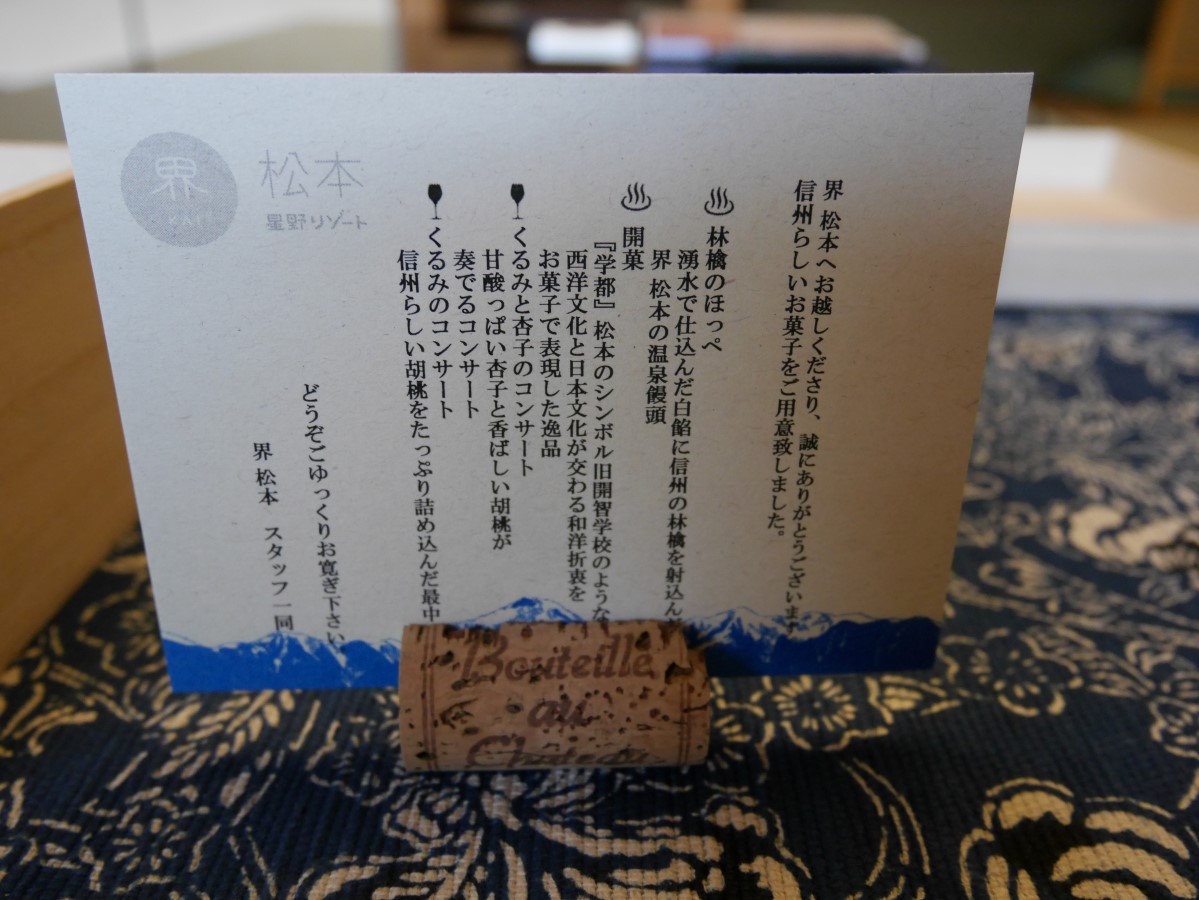 界 松本へお越しくださり、誠にありがとうございます
信州らしいお菓子をご用意致しました。
林檎のほっぺ
湧水で仕込んだ白餡に信州の林檎を射込んだ
界 松本の温泉饅頭
開菓
『学都』松本のシンボル旧開智学校のような
西洋文化と日本文化が交わる和洋折衷を
お菓子で表現した逸品
くるみと杏子のコンサート
甘酸っぱい杏子と香ばしい胡桃が
奏でるコンサート
くるみのコンサート
信州らしい胡桃をたっぷり詰め込んだ最中
どうぞごゆっくりお寛ぎ下さい。
界 松本 スタッフ一同
界
KAI
松本
星野リゾート
Bouteille
au
Chateau